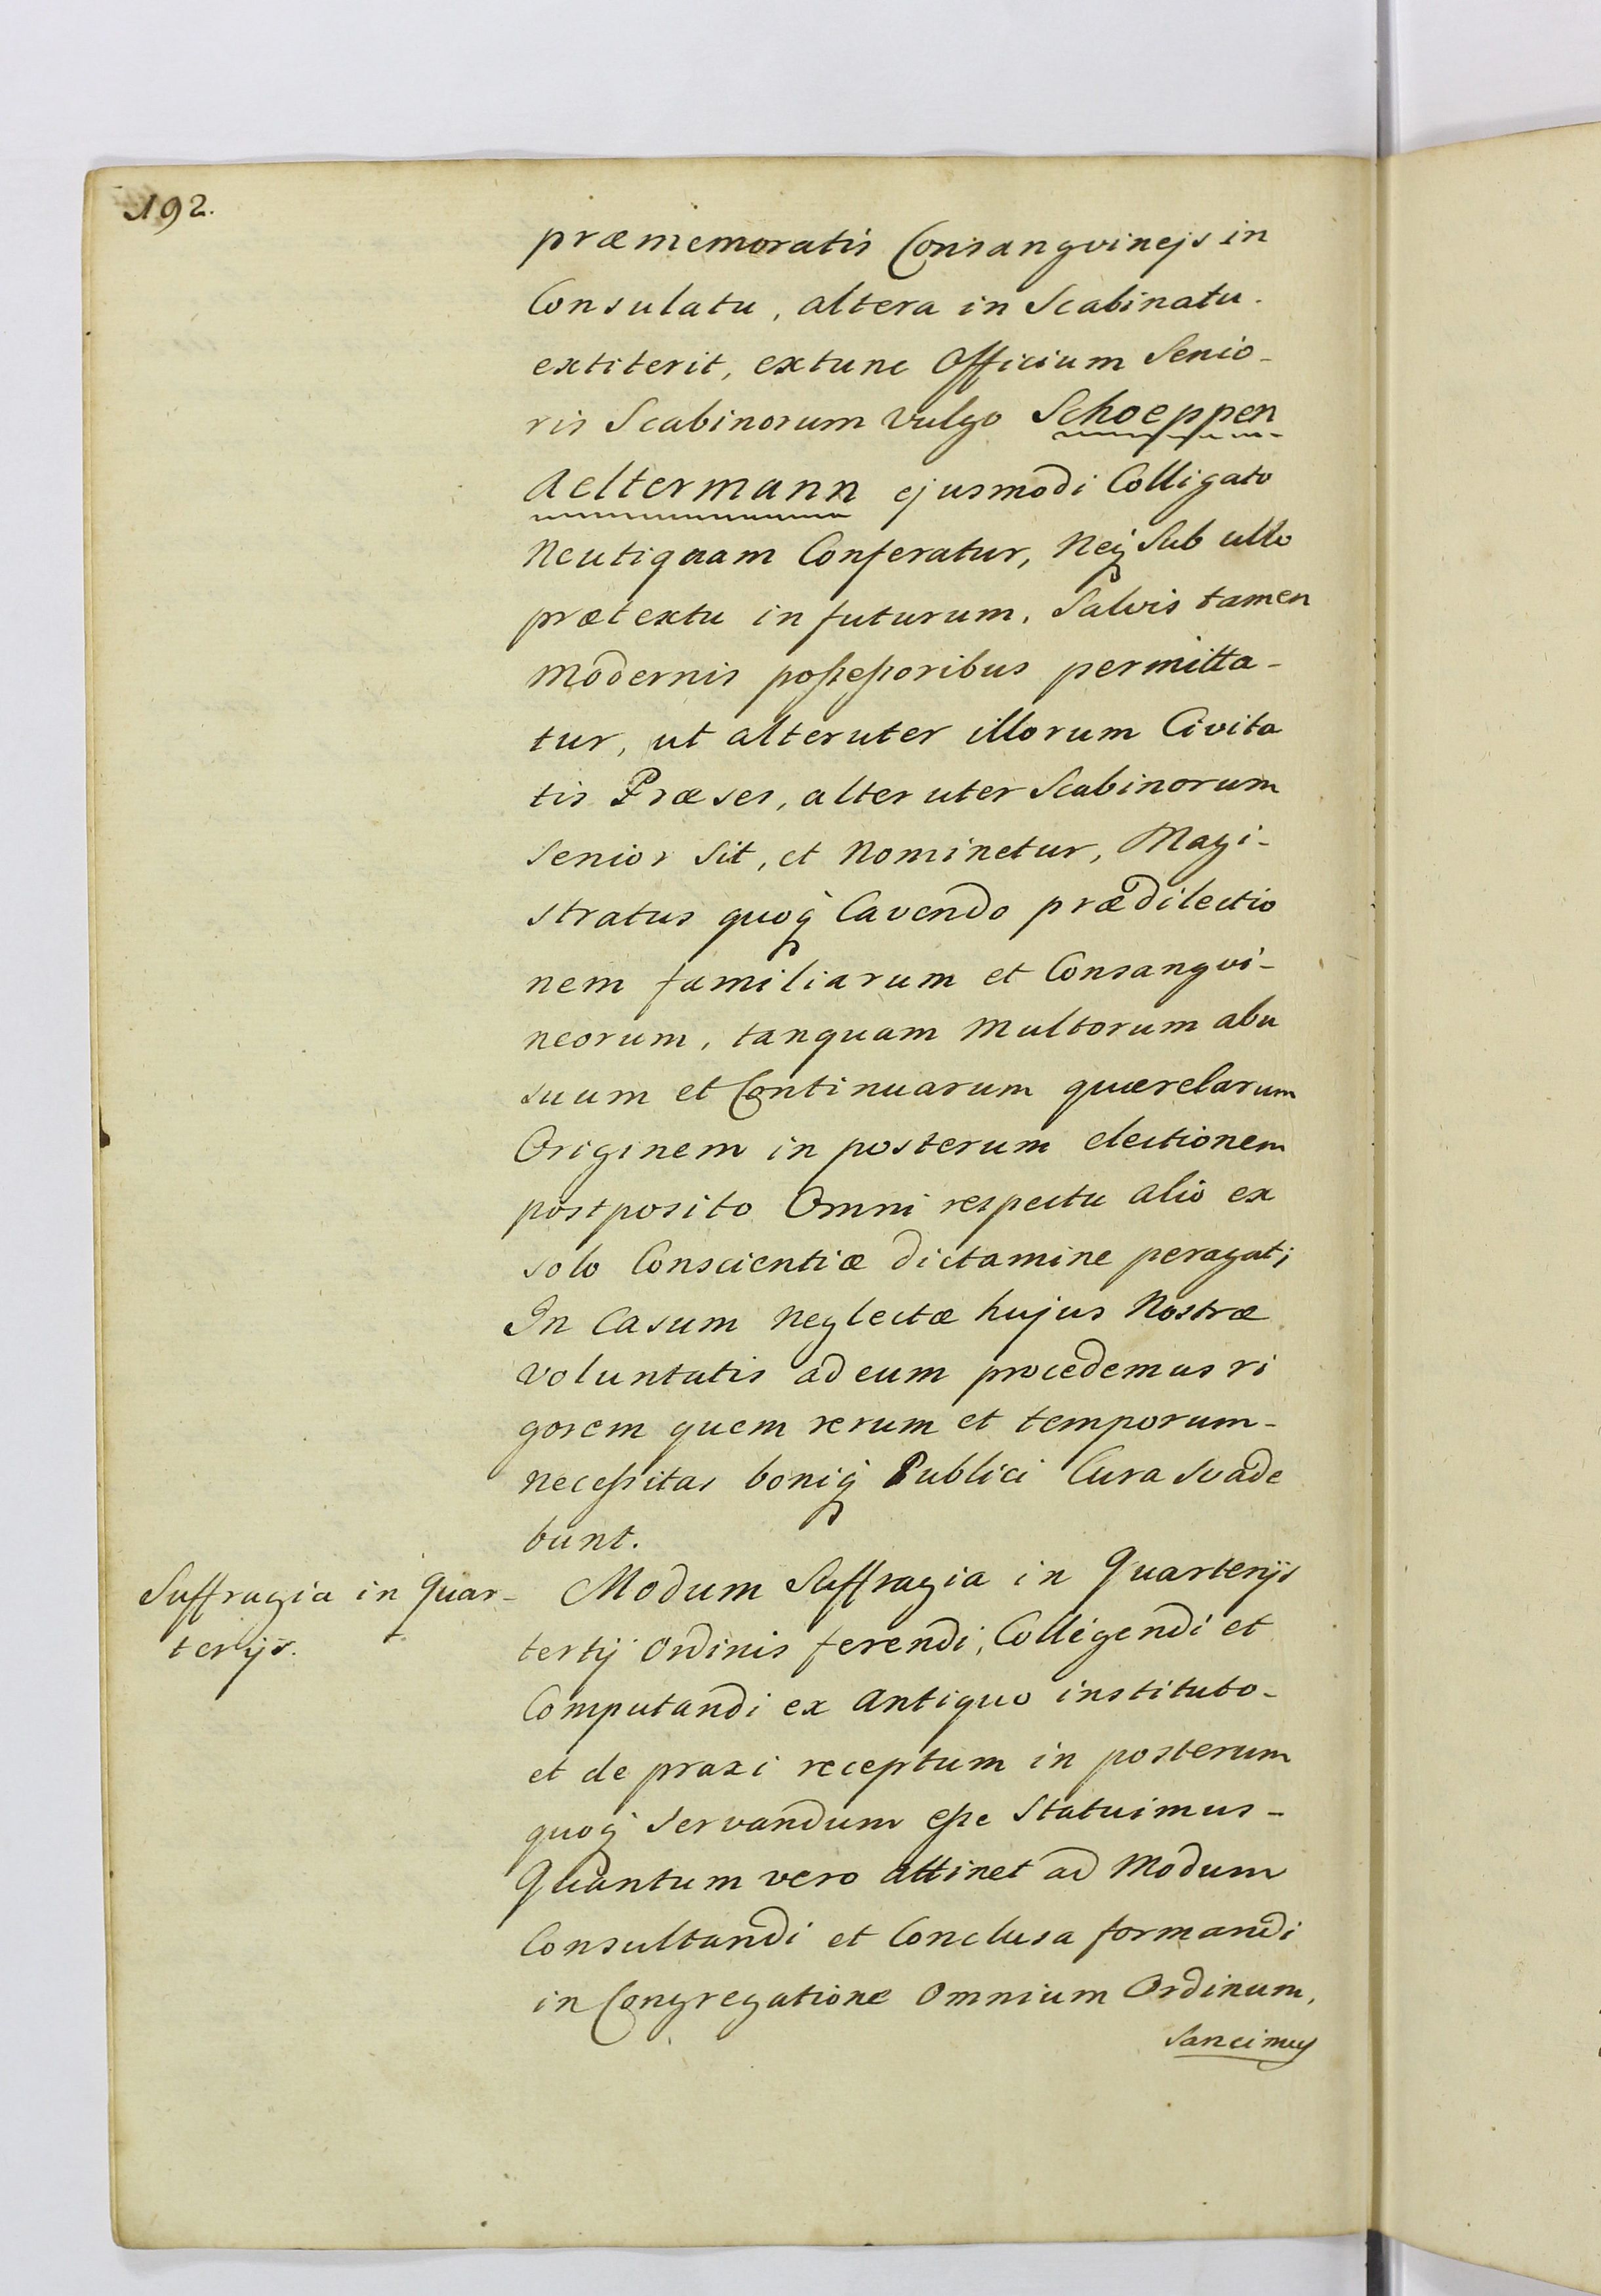 192.
præmemoratis Consangvinejs in
Consulatu, altera in Scabinatu.
extiterit, extunc Officium Senio-
ris Scabinorum vulgo Schoeppen
Aeltermann ejusmodi Colligato
Neutiquam Conferatur, Neq̃ Sub ullo
prætextu in futurum, Salvis tamen
modernis poßeßoribus permitta-
tur, ut alteruter illorum Civita
tis Præses, alteruter Scabinorum
Senior Sit, et Nominetur, Magi-
stratus quoq̃ Cavendo prædilectio
nem familiarum et Consangvi-
neorum, tanquam Multorum abu
suum et Continuarum quærelarum
Originem in posterum electionem
postposito Omni respectu alio ex
solo Conscientiæ dictamine peragat;
In Casum Neglectæ hujus Nostræ
voluntatis ad eum procedemus ri
gorem quem rerum et temporum-
Neceßitas boniq̃ Publici Cura Svade
bunt.
Suffragia in Quar-
terijs.
Modum Suffragia in Quarterijs
tertij Ordinis ferendi, Colligendi et
Computandi ex Antiquo instituto-
et de praxi receptum in posterum
quoq̃ Servandum eße Statuimus-
Quantum vero attinet ad Modum
Consultandi et Conclusa formandi
in Congregatione Omnium Ordinum,
Sancimus